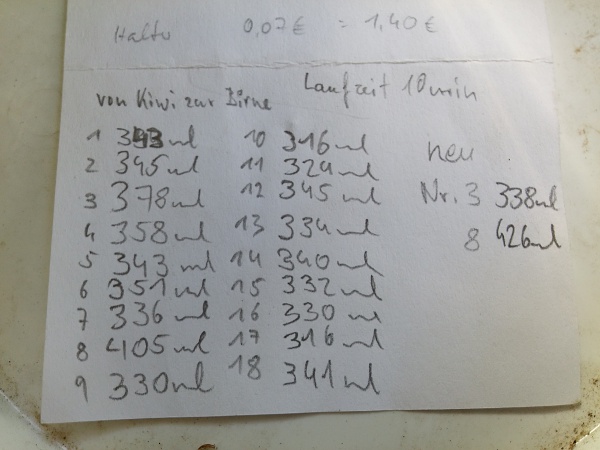 Halter 0,07€ = 1,40€
von Kiwi zur Birne Laufzeit 10min
1 343ml
2 345ml
3 378ml
4 358ml
5 343 ml
6 351ml
7 336ml
8 405ml
9 330ml
10 316ml
11 324ml
12 345ml
13 334ml
14 340ml
15 332ml
16 330 ml
17 316ml
18 341ml
neu
Nr. 3 338ml
8 426ml